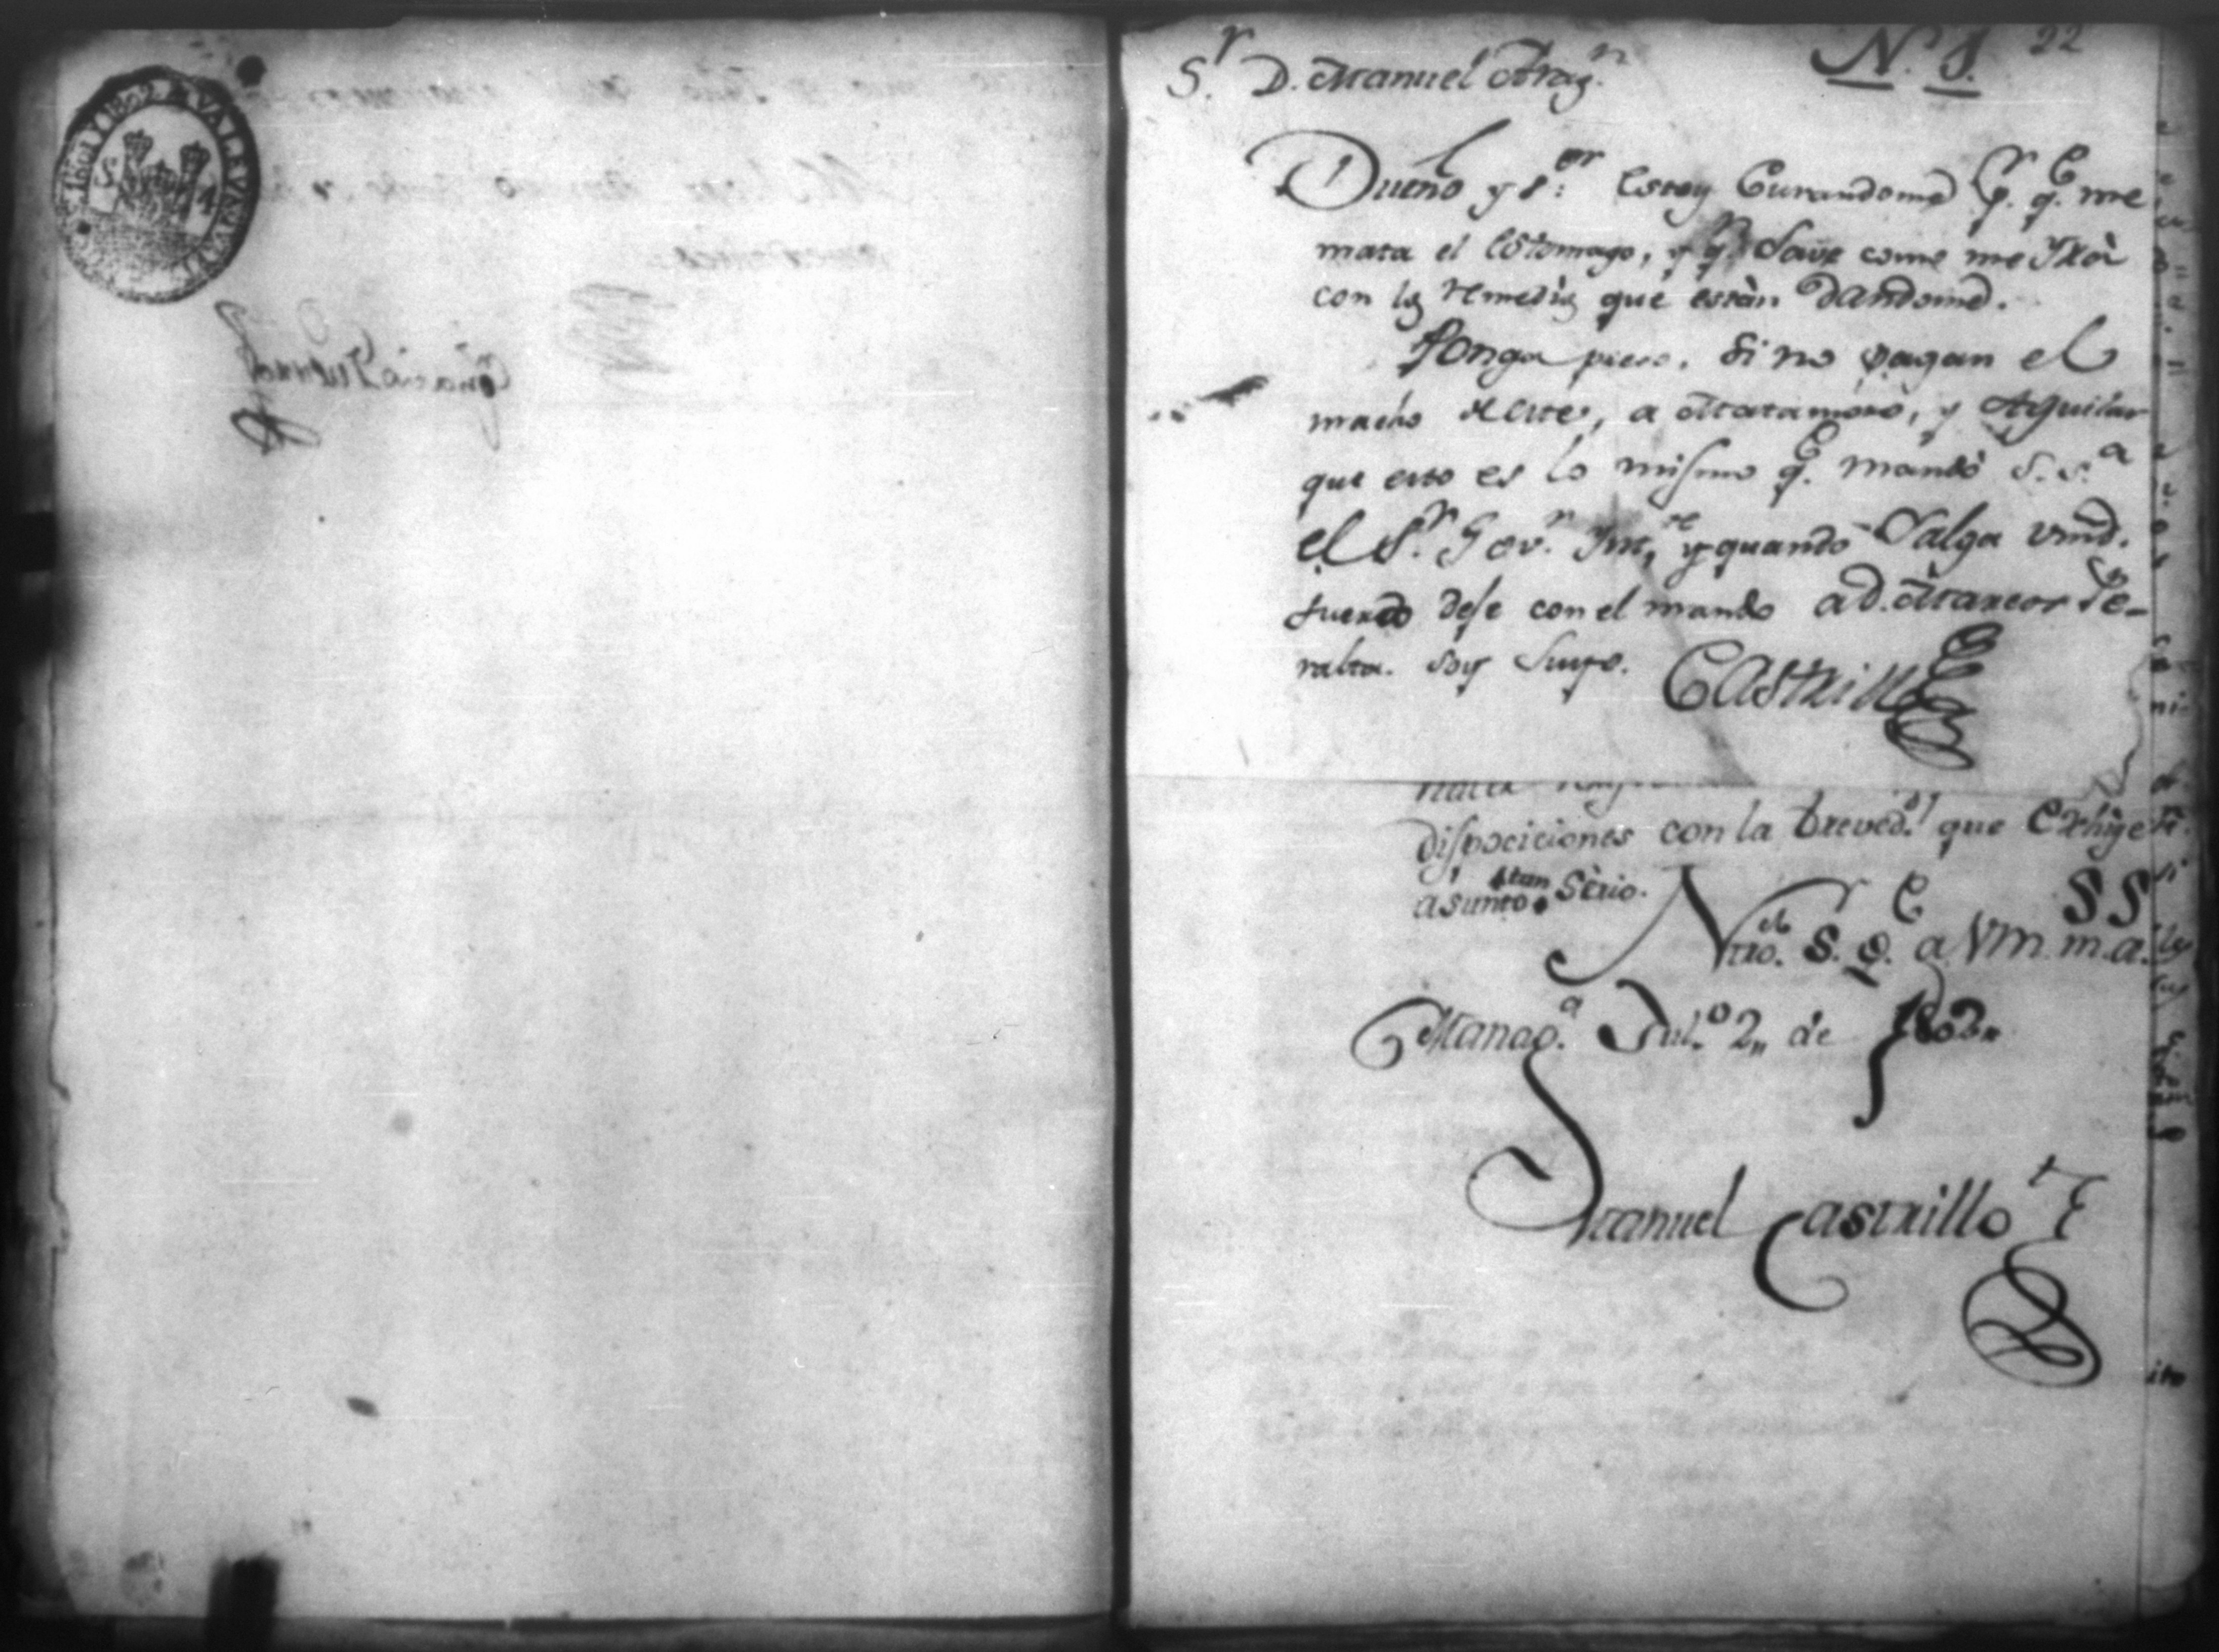 1801 Y 1802. VALE UN
S. A
N. 8. 22
S.r D. Manuel Arag.n
Dueño y S.or Estoy Curandome p.r q.e me
mata el Estomago, y q.n Save como me Yrá
con los remedios que están dandome.
Ponga preso. Si no pagan el
macho de este, a Matamoro, y Aguilar
que esto es lo mismo q.e mandó S. S.a
el S.r Gov.r Int.e y quando Salga vmd.
fuera dese con el mando a D. Marcos Pe-
ralta. Soy Suyo. Castrillo
disposiciones con la breved.d que Exhije
asunto tan Sèrio.
Ntro. S. g.e a Vm. m. a.s
Manag.a Jul.o 2,, de 1802,,
Manuel Castrillo